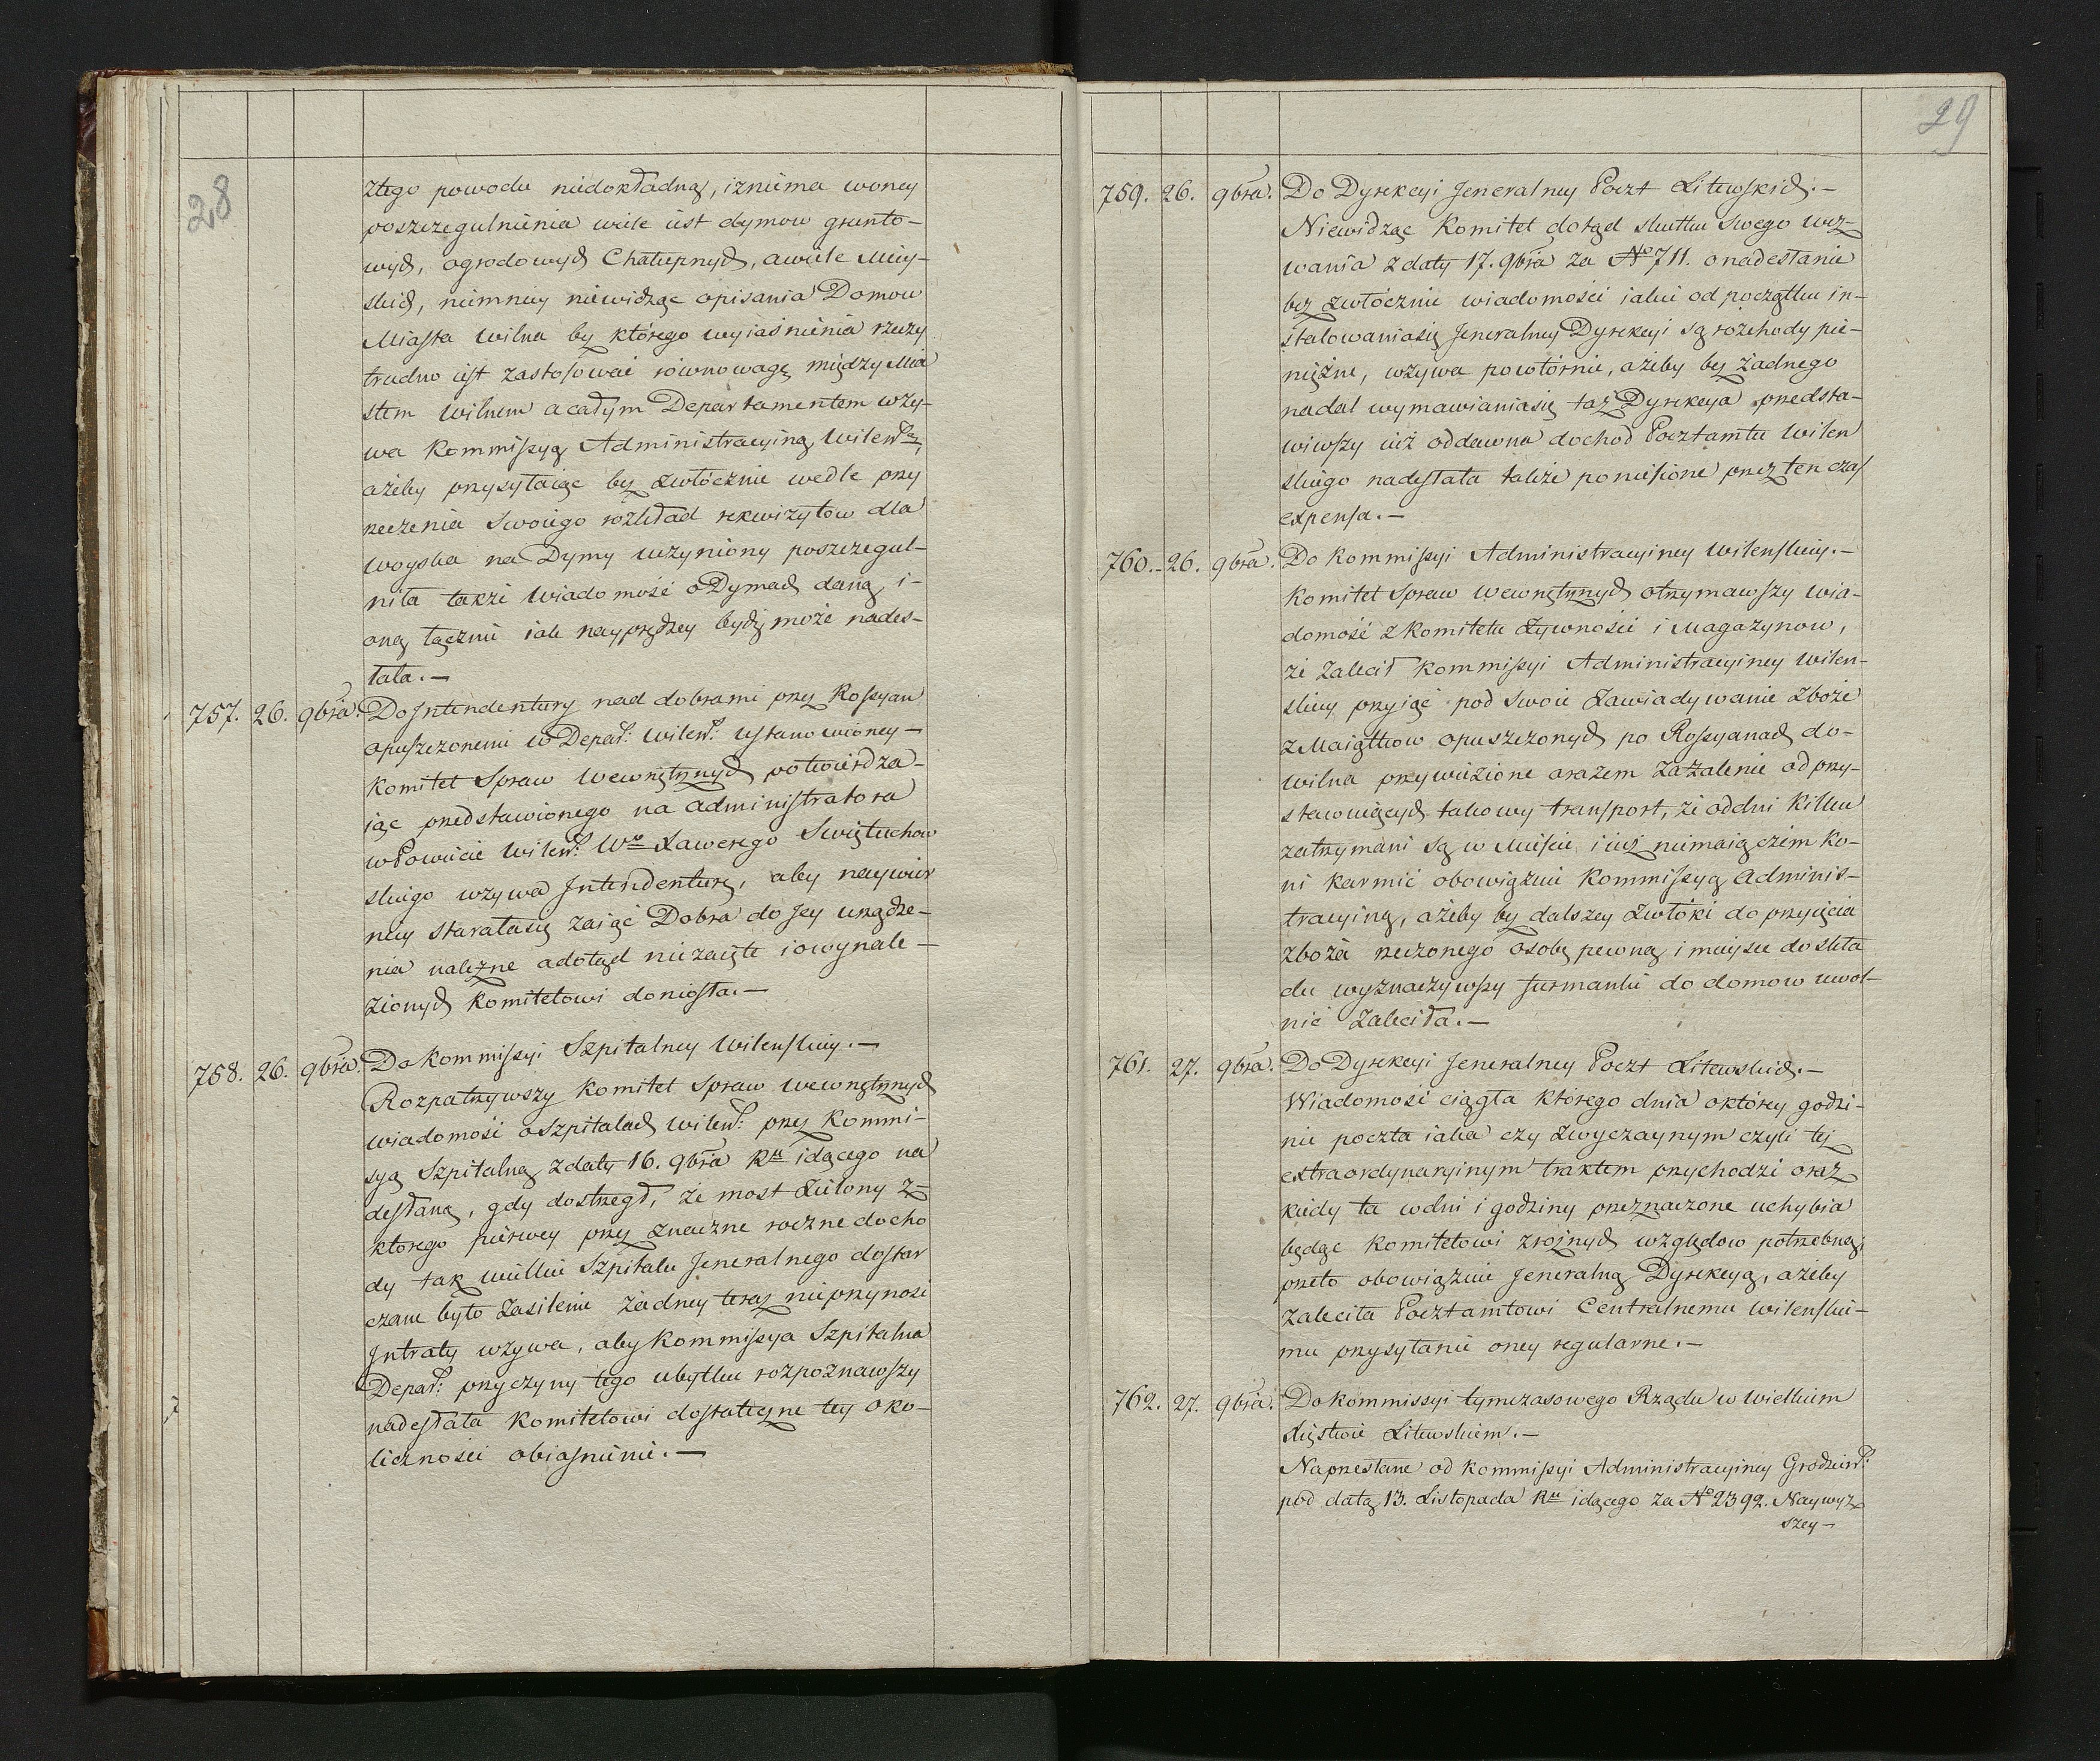 28
ztego powodu niedokładną, iż niema woney
poszczegulnienia wiele iest dymow grunto-
wych, ogrodowych Chałupnych, a wiele Miey-
skich, niemniey niewidząc opisania Domow
Miasta Wilna bez którego wyiaśnienia rzeczy
trudno iest zastosować rownowagę między Mia
stem Wilnem a całym Departamentem wzy-
wa Kommissyą Administracyiną Wileńską,
ażeby przysyłaiąc bez zwłócznie wedle przy
rzeczenia swoiego rozkład rekwizytow dla
woyska na Dymy uczyniony poszczegul-
niła także wiadomość o Dymach daną, i-
oną łącznie iak nayprędzey bydź może nades-
łała.—
757. 26. 9bra. Do Intendentury nad dobrami przez Rossyan
opuszczonemi w Depar: Wileń: ustanowioney—
Komitet Spraw Wewnętrznych potwierdza-
iąc przedstawionego na administratora
w Powiecie Wileń: Wo Xawerego Swiętuchow
skiego wzywa Intendenturę, aby naywier
niey starałasię zaiąć Dobra do Jey urządze-
nia należne a dotąd niezaięte i o wynale-
zionych Komitetowi doniosła.—
758. 26. 9bra. Do Kommissyi Szpitalney Wileńskiey.—
Rozpatrzywszy Komitet Spraw wewnętrznych
wiadomość o Szpitalach Wileń: przez Kommi-
syą Szpitalną z daty 16. 9bra Ru idącego na
desłaną, gdy dostrzegł, że most Zielony z-
ktorego pierwey przez znaczne roczne docho
dy tak wielkie Szpitalu Jeneralnego dostar
czane było zasilenie żadney teraz nieprzynosi
Intraty wzywa, aby Kommissya Szpitalna
Depar: przyczyny tego ubytku rozpoznawszy
nadesłała Komitetowi dostateczne tey oko-
liczności obiaśnienie.—
29
759. 26. 9bra. Do Dyrekcyi Jeneralney Poczt Litewskich.—
Niewidząc Komitet dotąd skutku swego wez-
wania z daty 17. 9bra za No 711. o nadesłanie
bez zwłócznie wiadomości iakie od początku in-
stalowaniasię Jeneralney Dyrekcyi są rozchody pie-
niężne, wzywa powtórnie, ażeby bez żadnego
nadal wymawianiasię taż Dyrekcya przedsta-
wiwszy iuż oddawna dochod Pocztamtu Wilen
skiego nadesłała także poniesione przez ten czas
expensa.—
760. 26. 9bra. Do Kommissyi Administracyiney Wileńskiey.—
Komitet Spraw Wewnętrznych otrzymawszy wia-
domość z Komitetu Żywności i Magazynow,
że zalecił Kommissyi Administracyiney Wilen-
skiey przyiąć pod swoie zawiadywanie zboże
z Maiątkow opuszczonych po Rossyanach do-
Wilna przywiezione a razem zażalenie od przy-
stawuiących takowy transport, że od dni kilku
zatrzymani są w Mieście i iuż niemaią czem ko-
ni karmić obowiązuie Kommissyą Adminis-
tracyiną, ażeby bez dalszey zwłóki do przyięcia
zboża rzeczonego osobę pewną i mieysce do skła
du wyznaczywszy furmanki do domow uwol-
nić zaleciła.—
761. 27. 9bra. Do Dyrekcyi Jeneralney Poczt Litewskich.—
Wiadomość ciągła którego dnia o którey godzi-
nie poczta iaka czy zwyczaynym czyli też
extraordynaryinym traktem przychodzi oraz
kiedy ta w dni i godziny przeznaczone uchybia
będąc Komitetowi z rożnych względow potrzebną,
przeto obowiązuie Jeneralną Dyrekcyą, ażeby
zaleciła Pocztamtowi Centralnemu Wileńskie-
mu przysyłanie oney regularne.—
762. 27. 9bra. Do Kommissyi tymczasowego Rządu w Wielkiem
Xięstwie Litewskiem.—
Naprzesłane od Kommissyi Administracyiney Grodzień:
pod datą 13. Listopada Ru idącego za No 2392. Naywyż-
szey—